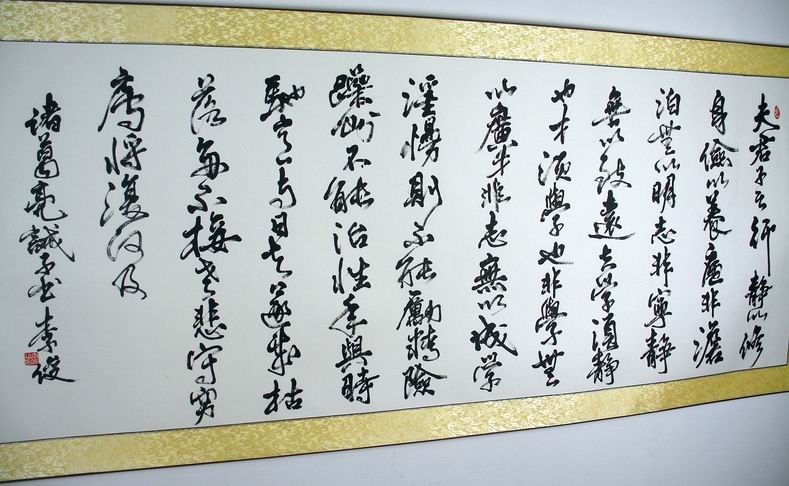 夫君子之行静以修
身儉以養德非澹
泊無以明志非寧静
無以致遠夫學須静
也才須學也非學無
以廣才非志無以成学
淫慢則不能勵精險
躁則不能治性年與時
馳意与日去遂成枯
落多不接世悲守窮
廬将復何及
諸葛亮誡子書 素俊